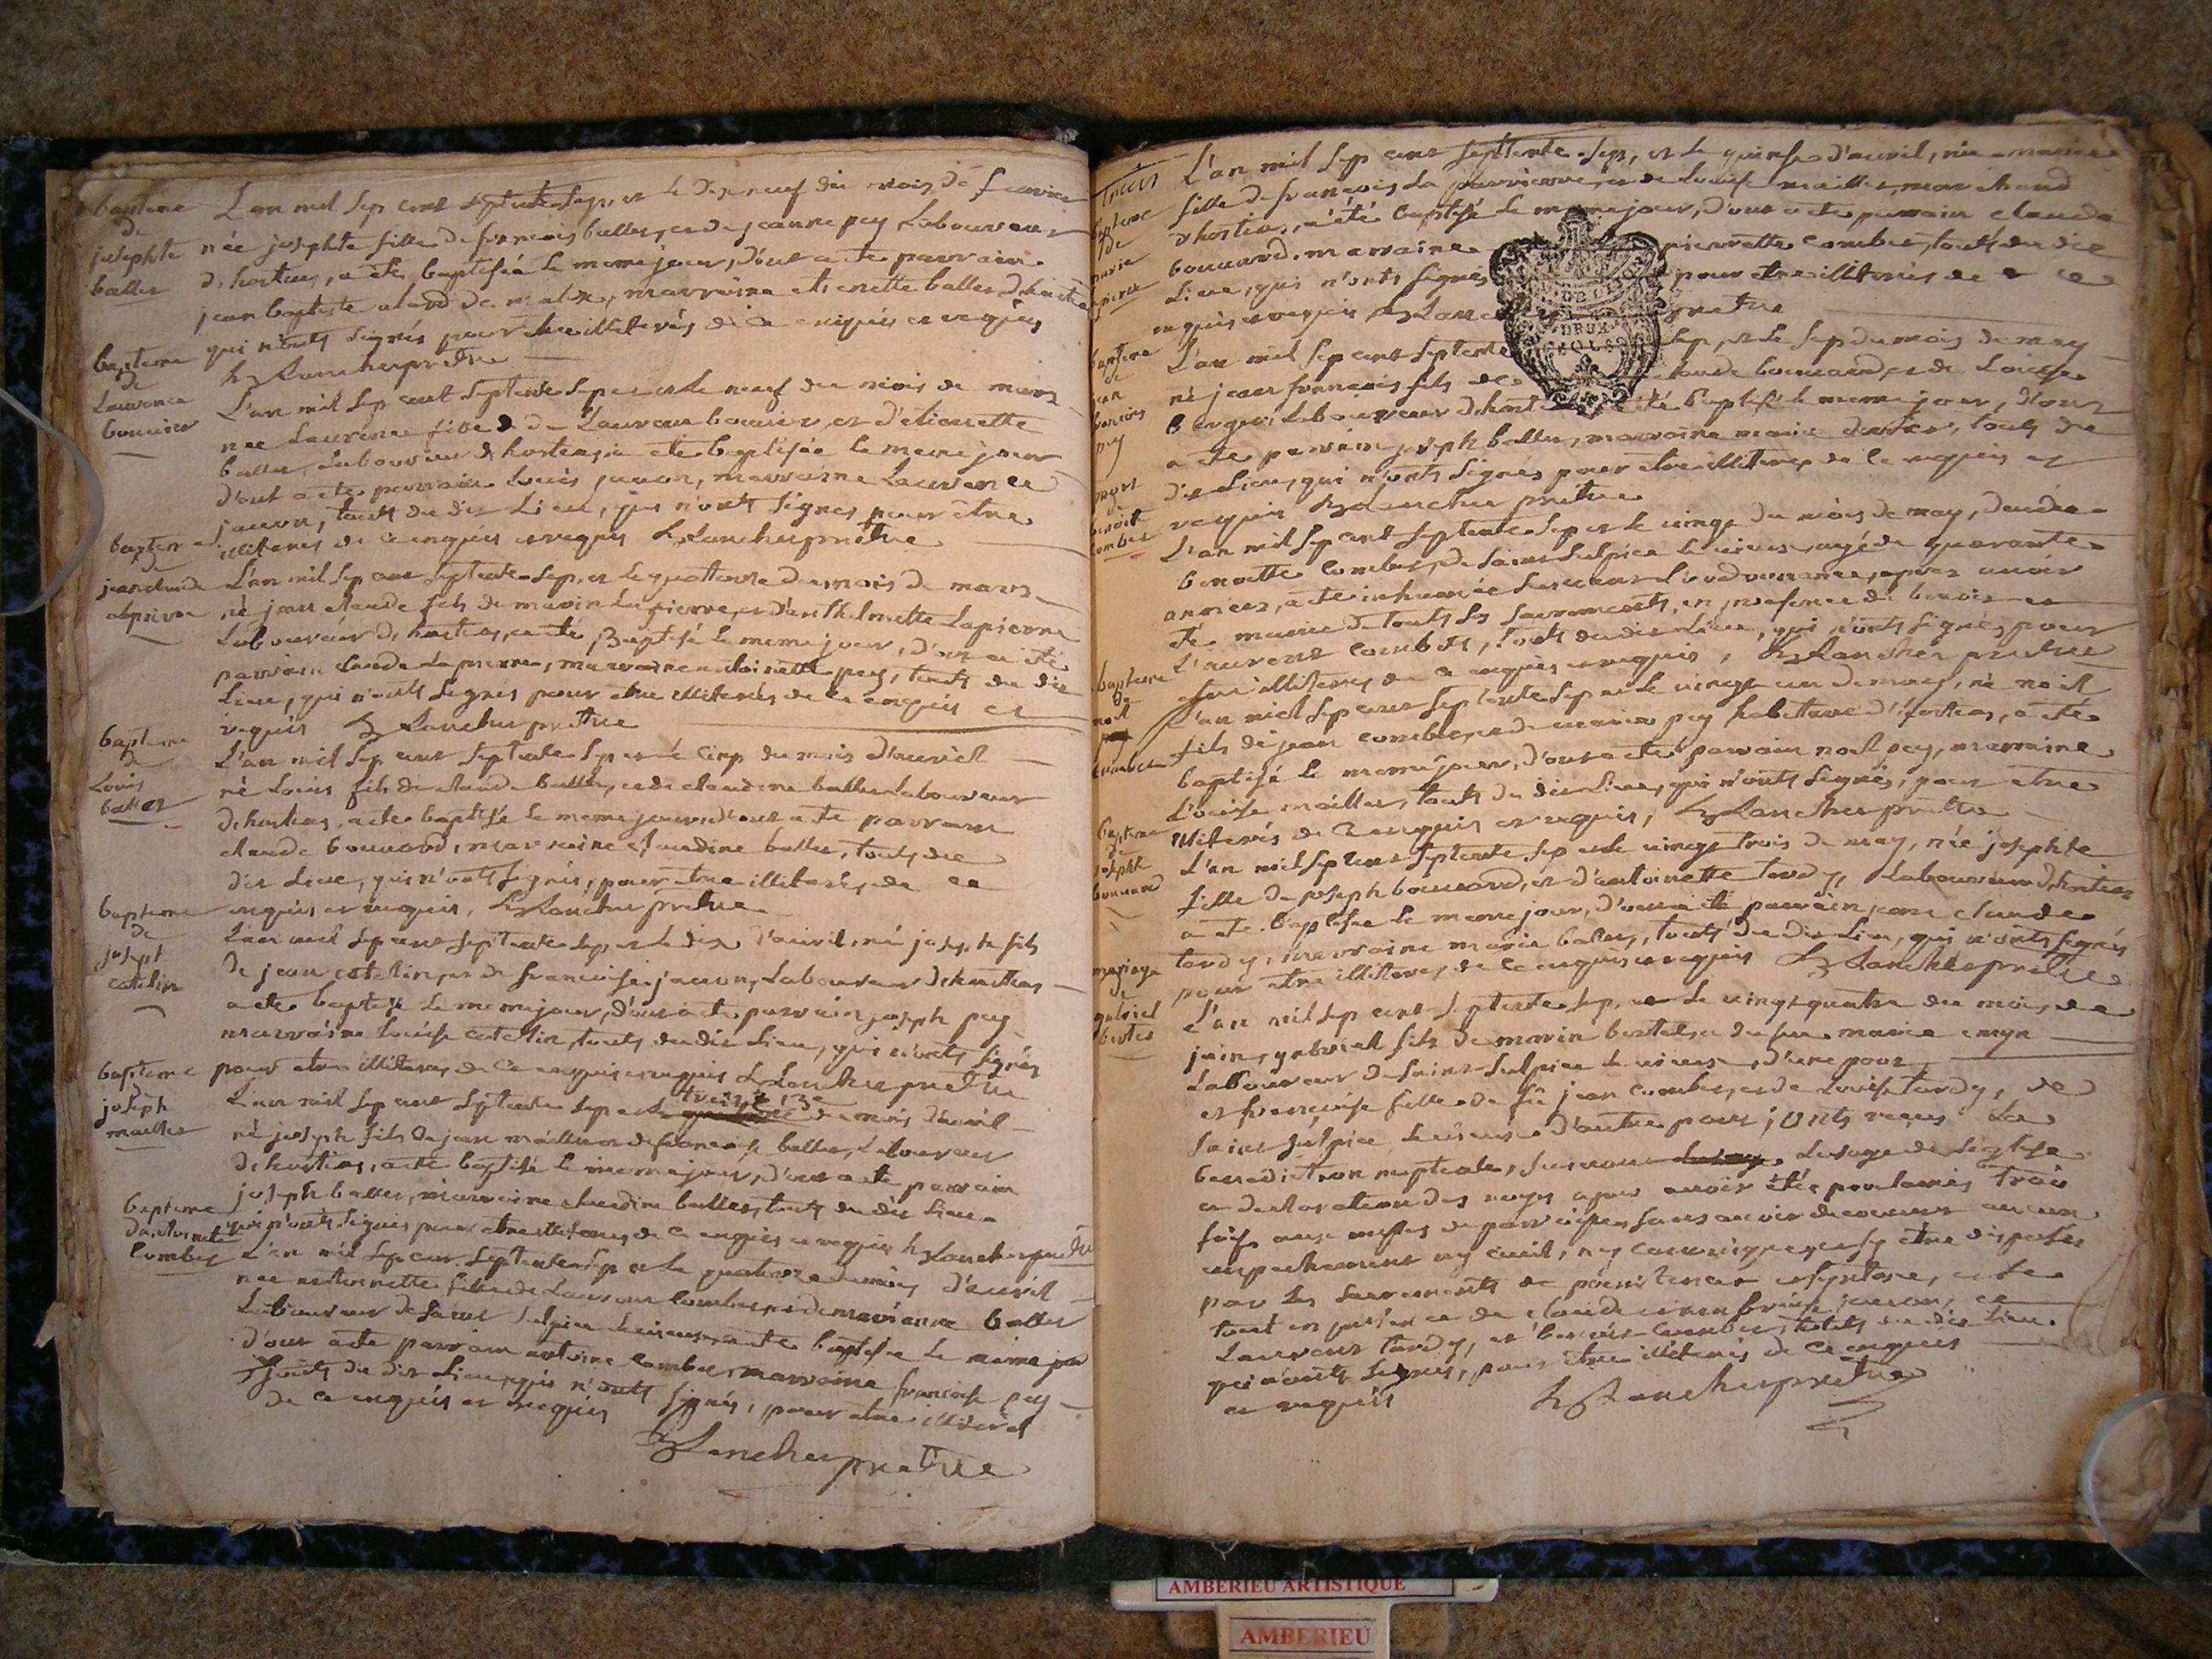 bapteme
de
josephte
balley
L'an mil sep cent septente sep, et le dix neuf du mois de fevrier
née josephte fille de francois balley, et de jeanne pey Laboureur
d'hostias, a été baptisée le meme jour, d'out a été parrain
jean baptiste marraine etienette balley d'hostias
qui n'onts signés pour etre illiterés de ce enquis et requis
Blancher pretre
bapteme
de
Laurence
bouvier
L'an mil sep cent septente sep et le neuf du mois de mars
née Laurence fille de Laurent bouvier, et d'etienette
balley, Laboureur d'hostias, a été baptisée le meme jour
d'out a été parrain Louis juvon, marraine Laurence
juvon, touts du dit Lieu, qui n'onts signés pour etre
illiterés de ce enquis et requis Blancher pretre
bapteme
de
jean claude
lapierre
L'an mil sep cent septente sep, et le quattorze du mois de mars
né jean claude fils de marin Lapierre, et d'anthelmette Lapierre
Laboureur d'hostias, a été Baptisé le meme jour, d'out a été
parrain claude Lapierre, marraine antoinette pey, touts du dit
Lieu, qui n'onts signés pour etre illiterés de ce enquis et
requis Blancher pretre
bapteme
de
Louis
balley
L'an mil sep cent septente sep et le cinq du mois d'auvril
né Louis fils de claude balley, et de claudine balley Laboureur
d'hostias, a été baptisé le meme jour, d'out a été parrain
claude bouvard, marraine claudine balley, touts du
dit Lieu, qui n'onts signés, pour etre illiterés, de ce
enquis et requis, Blancher pretre
bapteme
de
joseph
catelin
L'an mil sep cent septente sep, et le dix d'auvril, né joseph fils
de jean catelin, et de francoise juvon, Laboureur d'hostias
a été baptisé le meme jour, d'out a été parrain joseph pey
marraine Louise catelin, touts du dit Lieu, qui n'onts signés
pour etre illiterés de ce enquis et requis Blancher pretre
bapteme
joseph
maillier
L'an mil sep cent septente sep et le treize 13e du mois d'auvril
né joseph fils de jean maillier et de francoise balley, Laboureur
d'hostias, a été baptisé le meme jour, d'out a été parrain
joseph balley, marraine claudine balley, touts du dit Lieu
qui n'onts signés pour etre illiterés de ce enquis et requis Blancher pretre
bapteme
d'antoinette
Combet
L'an mil sep cent septente sep et le quatorze du mois d'auvril
née antoinette fille de Laurent Combet, et de marianne balley
Laboureur de saint sulpice le vieux, a été baptisée le meme jour
d'out a été parrain antoine Combet, marraine francoise pey
touts du dit Lieu, qui n'onts signés, pour etre illiterés
de ce enquis et requis
Blancher pretre
bapteme
de
marie
L'an mil sep cent septtente sep, et le quinse d'auvril, née marie
fille de françois La pierre, et de Louise maillier, marchand
d'hostias, a été baptisé le meme jour, d'out a été parrain claude
bouvard, marraine pierrette Combet, touts du dit
Lieu, qui n'onts signés pour etre illiterés de ce
enquis et requis Blancher pretre
bapteme
de
jean
francois
pey
L'an mil sep cent septente sep, et le sep du mois de may
né jean francois fils de claude bouvard, et de Louise
berger, Laboureur d'host été baptisé le meme jour, d'out
a été parrain joseph balley, marraine marie touts du
dit Lieu, qui n'onts signés pour etre illiterés de ce enquis et
requis Blancher pretre
mort
de
benoite
Combet
L'an mil sep cent septente sep et le vingt du mois de may,
benoitte Combet, de saint sulpice le vieux, agé de quarante
années, a été inhumée suivant L'ordonnance, apres avoir
été munie de touts les sacrements, en presence de benoit et
Laurent Combet, touts du dit Lieu, qui n'onts signés pour
etre illiterés de ce enquis et requis, Blancher pretre
bapteme
de
noel
combet
L'an mil sep cent septente sep et le vingt un de may, né noel
fils de jean combet, et de marie pey habitans d'hostias, a été
baptisé le meme jour, d'out a été parrain noel pey, marraine
Louise maillier, touts du dit Lieu, qui n'onts signés, pour etre
illiterés de ce enquis et requis, Blancher pretre
bapteme
de
josephte
bouvard
L'an mil sep cent septente sep et le vingt trois de may, née josephte
fille de joseph bouvard, et d'antoinette tardy, Laboureur d'hostias
a été baptisée le meme jour, d'out a été parrain jean claude
tardy, marraine marie balley, touts du dit Lieu, qui n'onts signés
pour etre illiterés, de ce enquis et requis Blancher pretre
mariage
de
gabriel
bertet
L'an mil sep cent septente sep, et le vingt quatre du mois de
juin, gabriel fils de marin bertet, et de feue marie
Laboureur de saint sulpice le vieux, d'une part
et francoise fille de fû jean combet, et de Louise tardy, de
saint sulpice le vieux d'autre part, onts reçus La
benediction nuptiale, suivant L'usage de L'eglise
et declaration des roys apres avoir étés proclamés trois
fois aux messes de parroisses sans avoir decouvert aucun
empechement ny civil, ny canonique, et etre disposés
par les sacrements de penitence et le
tout en presence de claude juvon, et
Laurent tardy, et benoit Combet, touts du dit Lieu
qui n'onts signés, pour etre illiterés de ce enquis
et requis Blancher pretre
AMBERIEU ARTISTIQUE
AMBERIEU